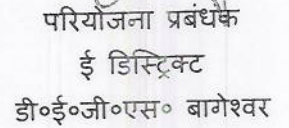 परियोजना प्रबंधक
ई डिस्ट्रिक्ट
डी०ई०जी०एस० बागेश्वर